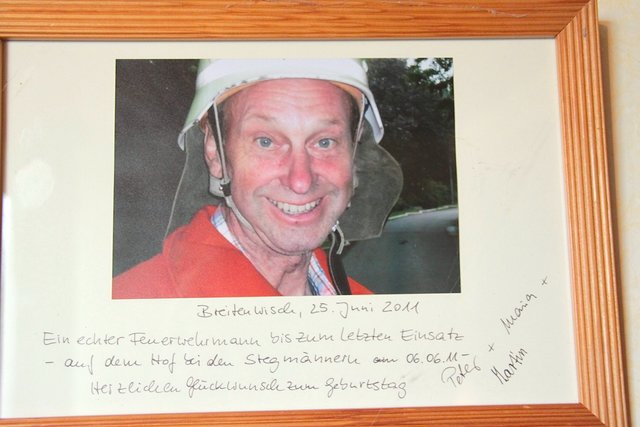 Breitenwisch, 25. Juni 2011
Ein echter Feuerwehrmann bis zum letzten Einsatz
- auf dem Hof bei den Stegmännern am 06.06.11-
Herzlichen Glückwunsch zum Geburtstag
Peter + Maria +
Martin